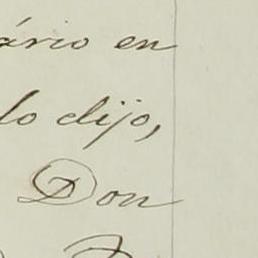 ário en
lo dijo,
Don